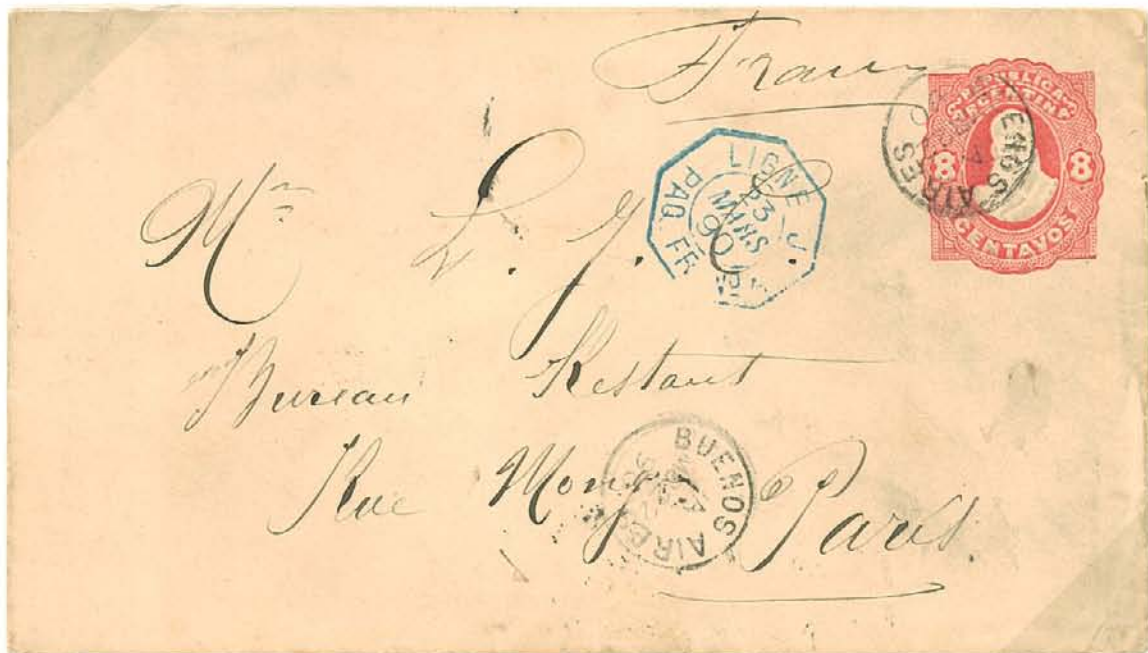 France
REPUBLICA
ARGENTINA
8 8
CENTAVOS
BUENOS AIRES
LIGNE J.
PAQ. FR.
23
MARS
90
Mr L. J.
Bureau Restant
Rue Monge
Paris.
BUENOS AIRES